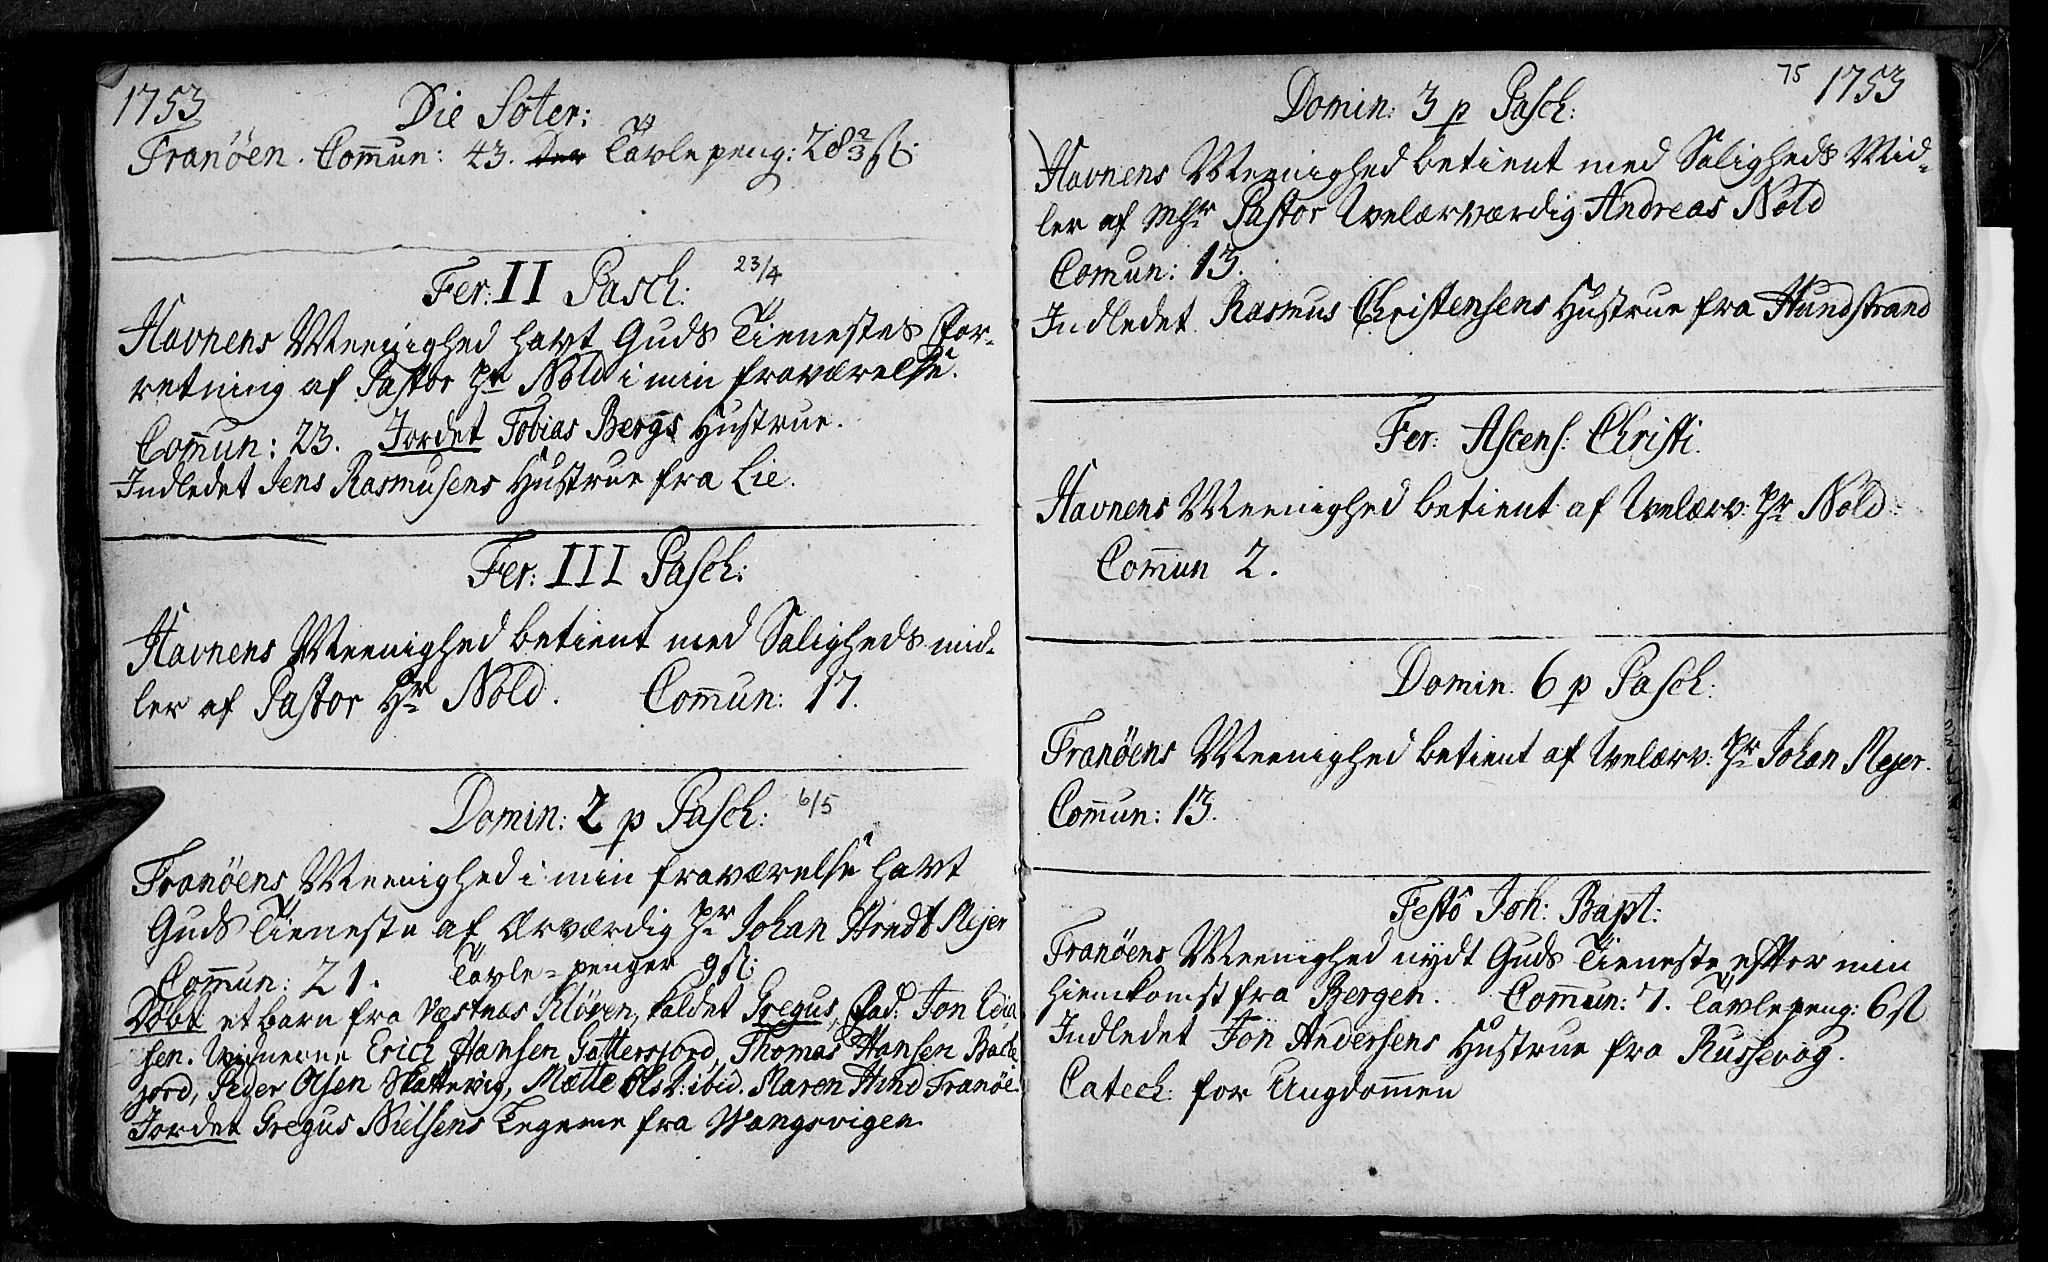 1753
Die Soter:
Franöen. Com̄un: 43. Der Tavle peng: 28 2/3 ſl:
Fer: II Pasch: 23/4
Havnens Meenighed havt Guds Tienestes for-
retning af Pastor Hr Nold i min fraværelse.
Com̄un: 23. Jordet Tobias Bergs Hustrue.
Indledet Jens Rasmusens Hustrue fra Lie.
Fer: III Pasch:
Havnens Meenighed betient med Saligheds mid-
ler af Pastor Hr Nold. Com̄un: 17.
Domin: 2 p Pasch: 6/5
Franöens Meenighed i min fraværelse havt
Guds Tieneste af Ærværdig Hr Johan Arndt Mejer
Com̄un: 21. Tavle-penger 9 ſl:
Döbt et barn fra Væstnæs Klöven, kaldet Gregus, Fad: Jon
sen. Vidnerne Erich Hansen Gottersjord, Thomas Hansen Back
jord, Peder Olsen Skattevig, Mætte Ols D: ibid. Maren Hind Franöe
Jordet Gregus Nielsens Legeme fra Vangsvigen
75 1753
Domin: 3 p Pasch:
Havnens Meenighed betient med Saligheds Mid-
ler af Mhr Pastor Velærværdig Andreas Nold
Comun: 13.
Indledet Rasmus Christensens Hustrue fra Hundstrand
Fer: Ascens: Christi.
Havnens Meenighed betient af Velærv: Hr Nold.
Com̄un 2.
Domin. 6 p Pasch:
Franöens Meenighed betient af Velærv: Hr Johan Mejer.
Com̄un: 13.
Festo Joh: Bapt:
Franöens Meenighed nydt Guds Tieneste efter min
hiemkomst fra Bergen. Com̄un: 7. Tavlepeng: 6 ſl
Indledet Jon Andersens Hustrue fra Russevog.
Catech: for Ungdom̄en